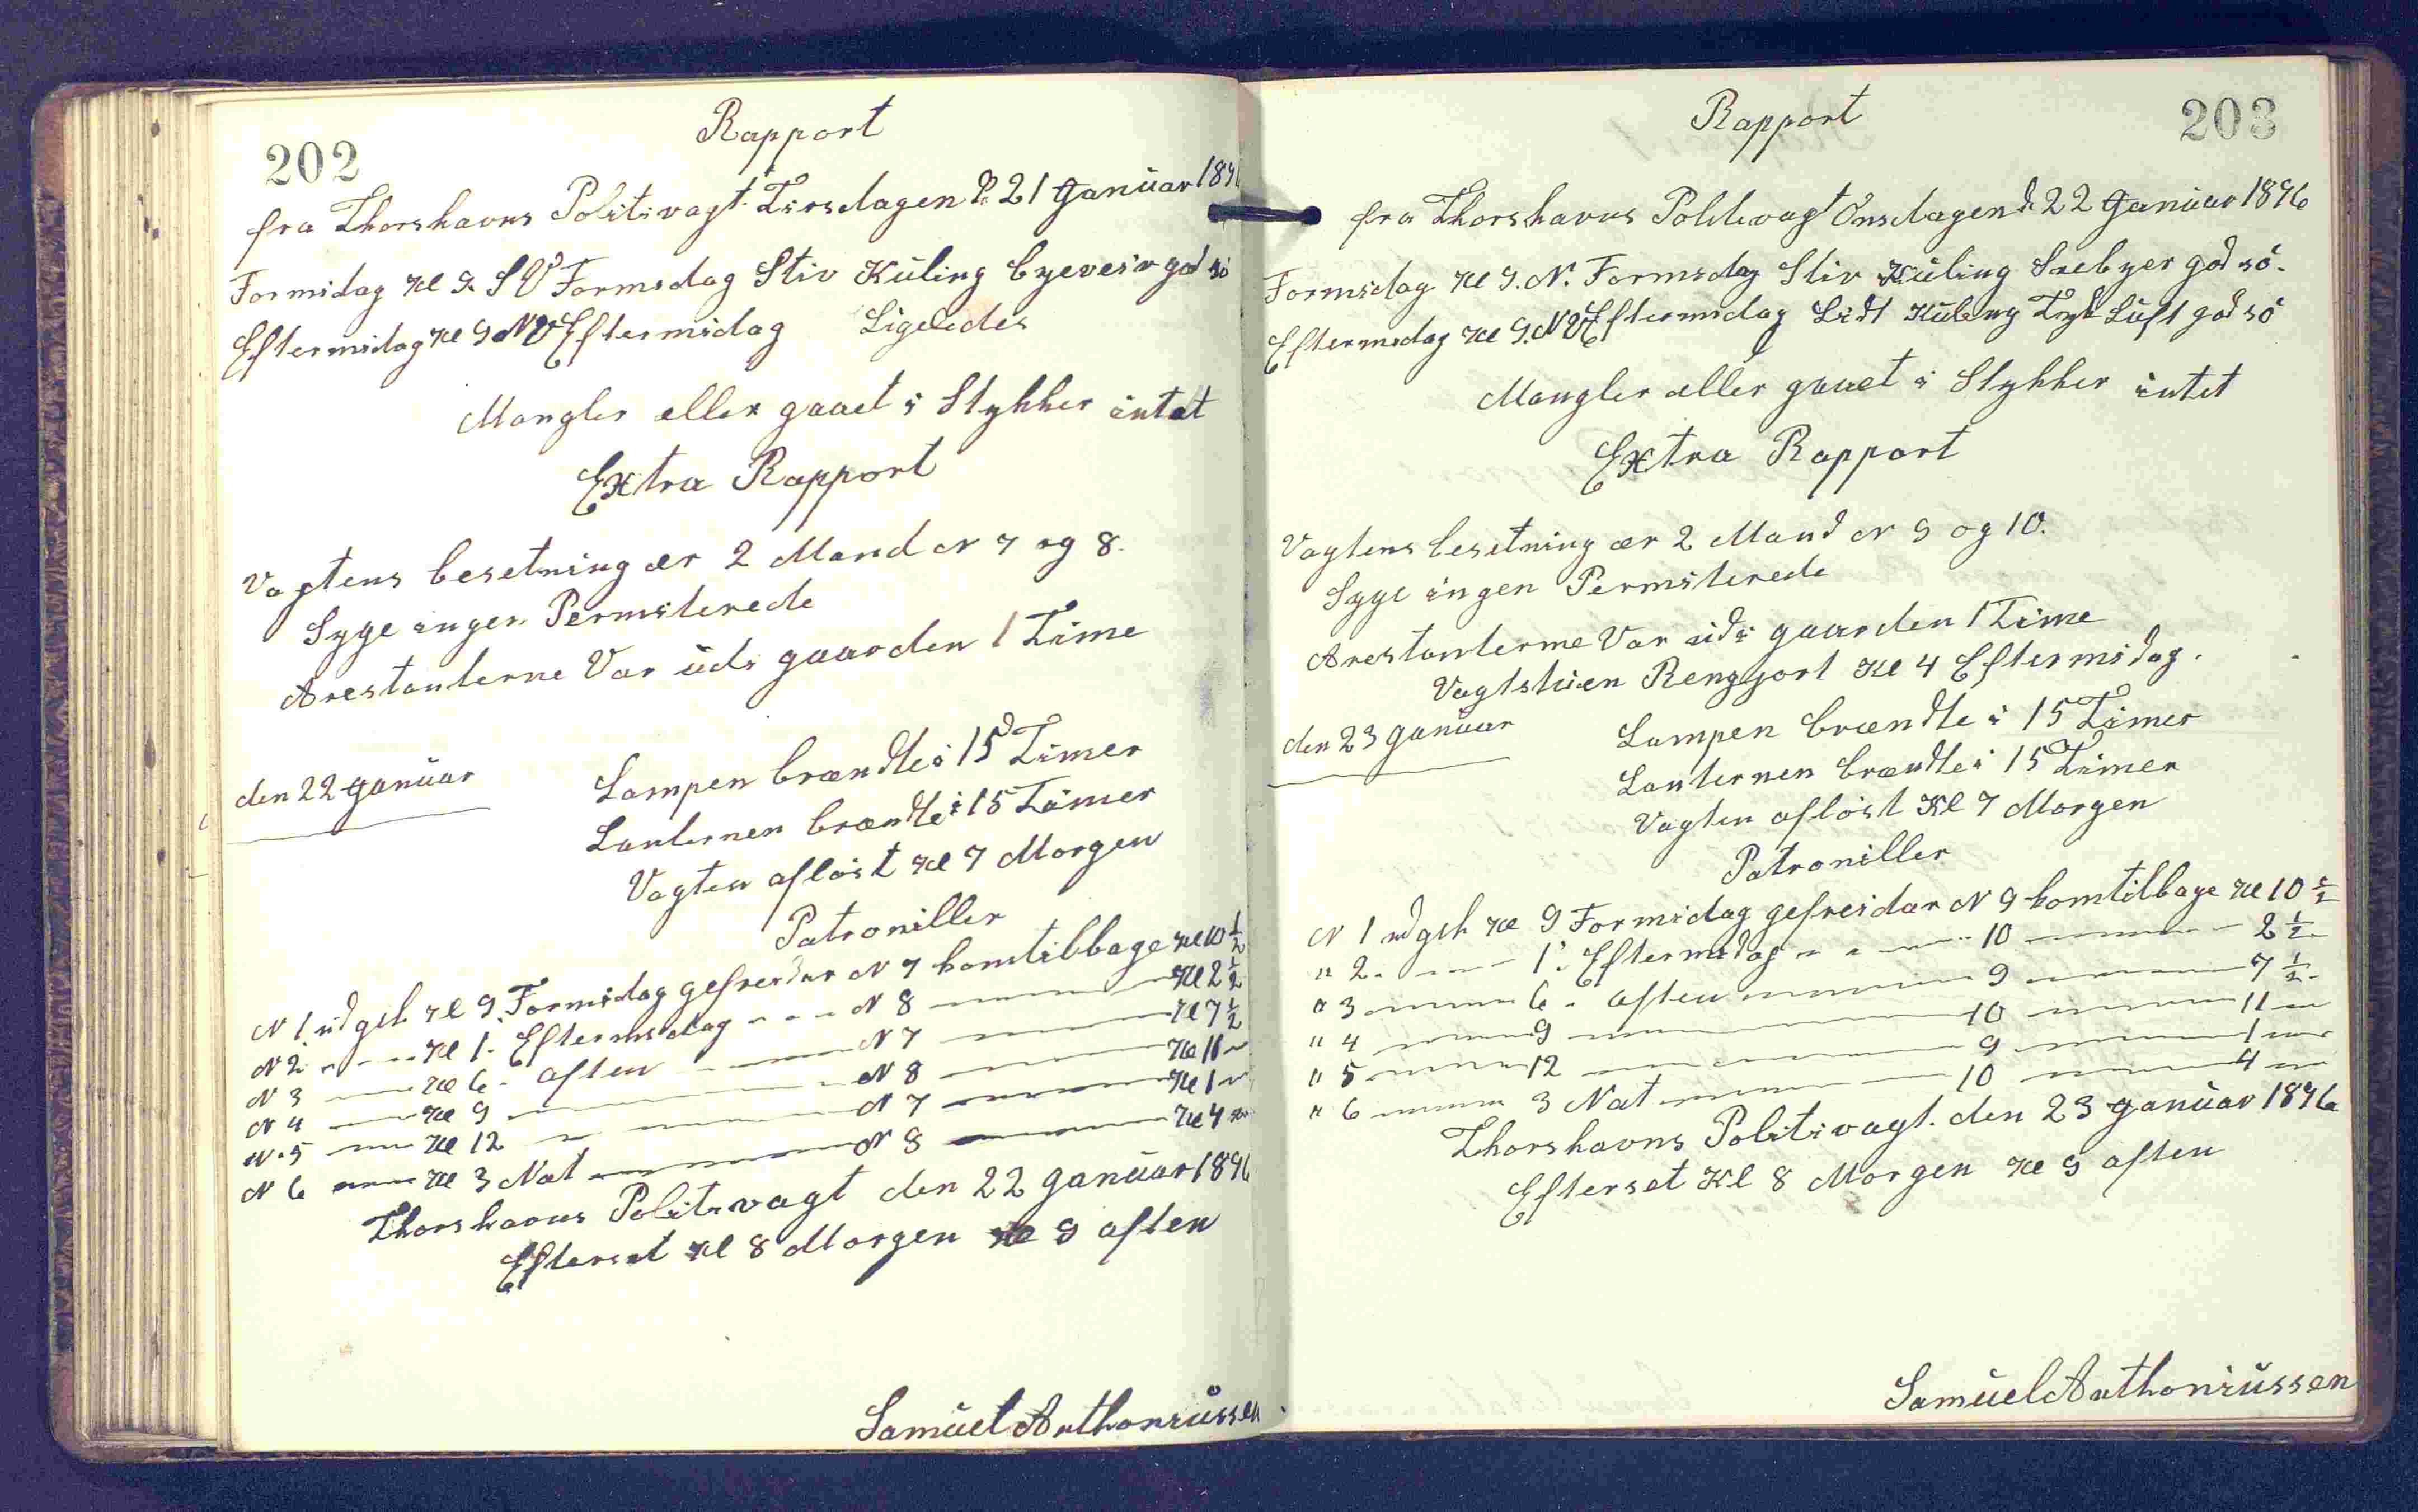 202
Rapport
fra Thorshavns Politivagt Tirsdagen D. 21 Januar 1896
Formidag Kl 9. SV Formidag Stiv Kuling byeveir god sö
Eftermidag Kl 9 NV Eftermidag Ligeledes
Mangler eller gaaet i Stykker intet
Extra Rapport
Vagtens besetning er 2 Mand N 7 og 8.
Syge ingen Permiterede
Arestanterne Var udi gaarden 1 Time
den 22 Januar
Lampen brændte i 15 Timer
Lanternen brændte i 15 Timer
Vagten aflöst Kl 7 Morgen
Patroniller
N 1 udgik Kl 9 Formidag gefreidar N 7 komtilbage Kl 10 1/2
N 2 " " " Kl 1. Eftermidag " " " N 8 " Kl 2 1/2
N 3 " Kl 6 - aften " N 7 " Kl 7 1/2
N 4 " Kl 9 " N 8 " Kl 11 "
N. 5 " Kl 12 " N 7 " Kl 1 "
N 6 " Kl 3 Nat " N 8 " Kl 4 "
Thorshavns Politivagt den 22 Januar 1896
Efterset Kl 8 Morgen Kl 9 aften
Samuel Anthoniussen
203
Rapport
fra Thorshavns Politivagt Onsdagen d. 22 Januar 1896
Formidag Kl 9. N. Formidag Stiv Kuling Snebyer god sö.
Eftermidag Kl 9. NV Eftermidag Lidt Kuling Tyk Luft god sö
Mangler eller gaaet i Stykker intet
Extra Rapport
Vagtens besetning er 2 Mand N 9 og 10.
Syge ingen Permiterede
Arestanterne Var udi gaarden 1 Time
Vagtstuen Rengjort Kl 4 Eftermidag.
den 23 Januar
Lampen brændte i 15 Timer
Lanternen brændte i 15 Timer
Vagten aflöst Kl 7 Morgen
Patroniller
N 1 udgik Kl 9 Formidag gefreidar N 9 komtilbage Kl 10 1/2
" 2. " 1. Eftermidag " " " 10 " 2 1/2
" 3 " 6 - aften " 9 " 7 1/2
" 4 " 9 " 10 " 11 "
" 5 " 12 " 9 " 1 "
" 6 " 3 Nat " 10 " 4 "
Thorshavns Politivagt. den 23 Januar 1896
Efterset Kl 8 Morgen Kl 9 aften
Samuel Anthoniussen